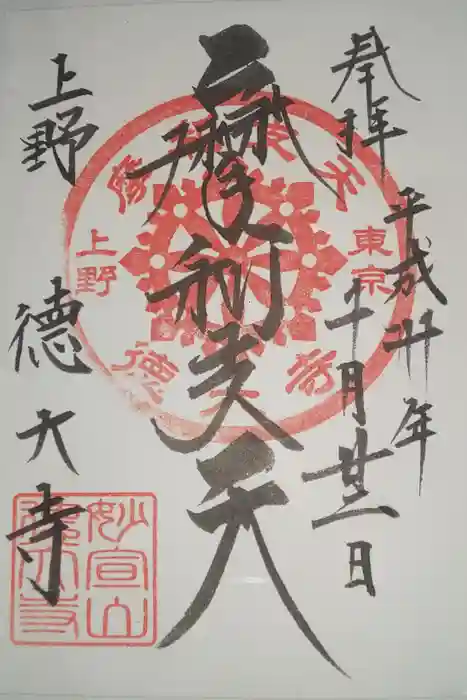 奉拝
平成卅年
十月廿二日
摩利支天
上野 德大寺
摩利支天
東京
上野
德大寺
妙宣山
德大寺